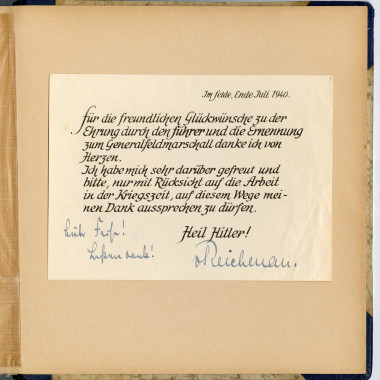 Im Felde, Ende Juli 1940.
Für die freundlichen Glückwünsche zu der
Ehrung durch den Führer und die Ernennung
zum Generalfeldmarschall danke ich von
Herzen.
Ich habe mich sehr darüber gefreut und
bitte, nur mit Rücksicht auf die Arbeit
in der Kriegszeit, auf diesem Wege mei-
nen Dank aussprechen zu dürfen.
Heil Hitler!
vReichenau.